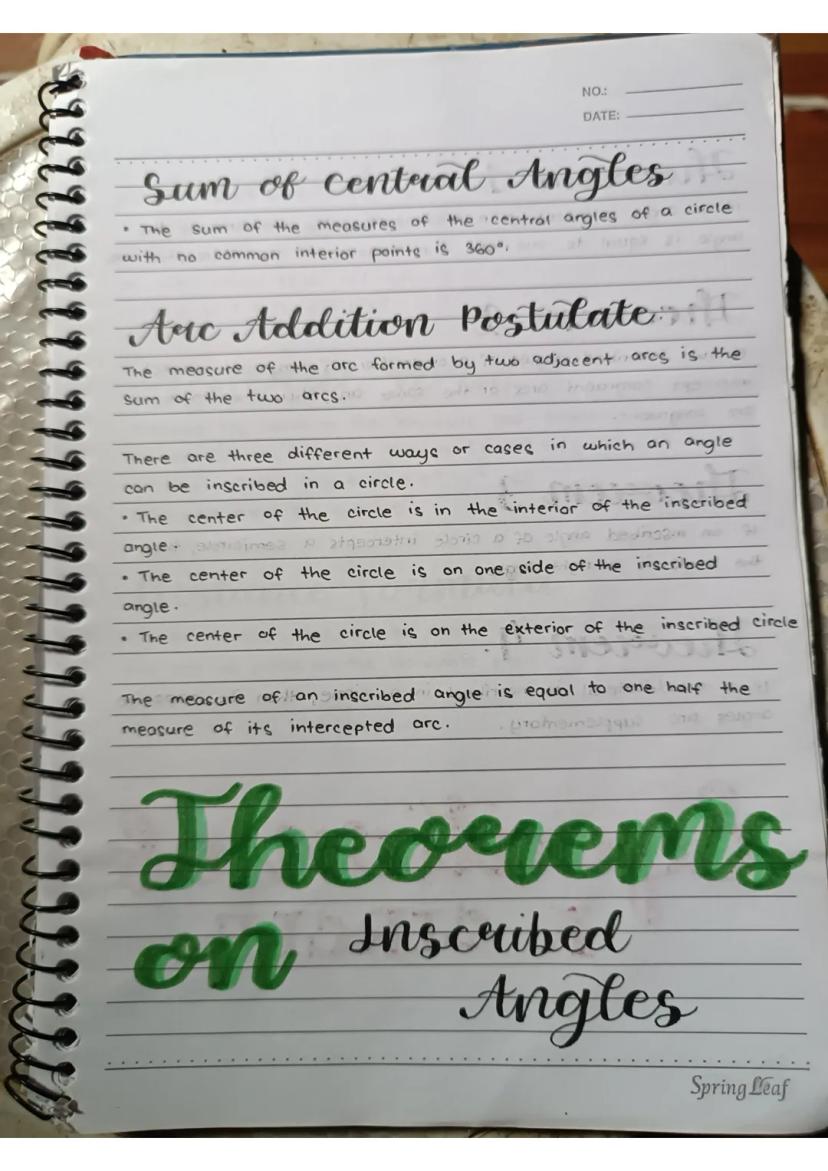 NO.:
DATE:
Sum of Central Angles
• The sum of the measures of the central angles of a circle
with no common interior points is 360°.
Arc Addition Postulate
The measure of the arc formed by two adjacent arcs is the
sum of the two arcs.
There are three different ways or cases in which an angle
can be inscribed in a circle.
• The center of the circle is in the interior of the inscribed
angle.
• The center of the circle is on one side of the inscribed
angle.
• The center of the circle is on the exterior of the inscribed circle
The measure of an inscribed angle is equal to one half the
measure of its intercepted arc.
Theorems
on Inscribed
Angles
Spring Leaf